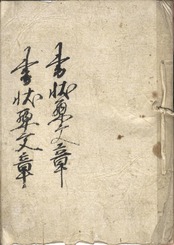 書状文章
書状文章